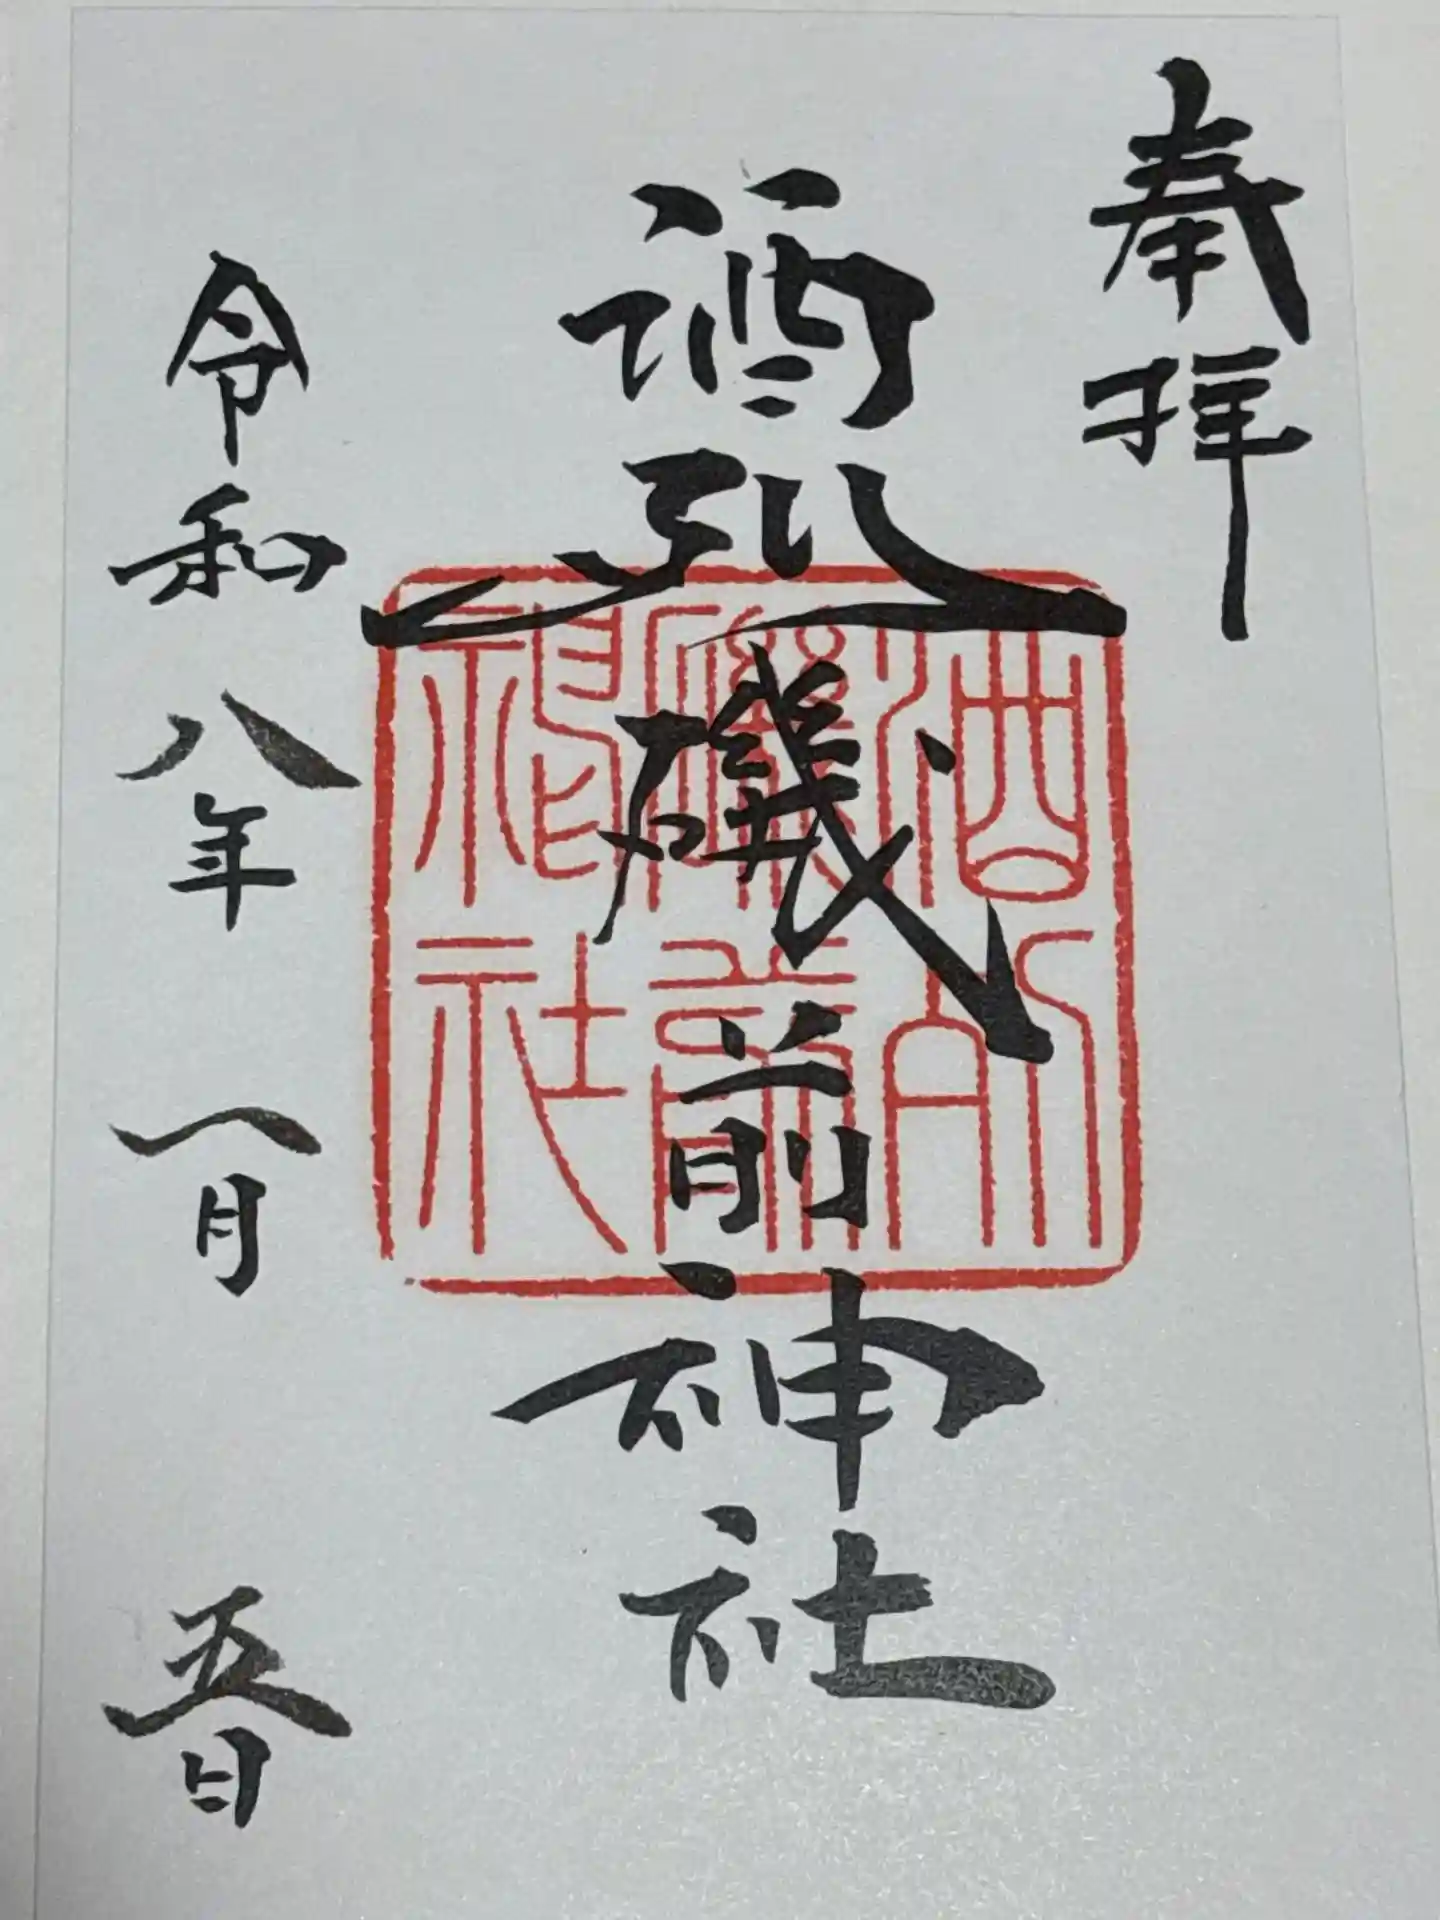 奉拝
酒列磯前神社
酒列磯前神社
令和八年一月五日